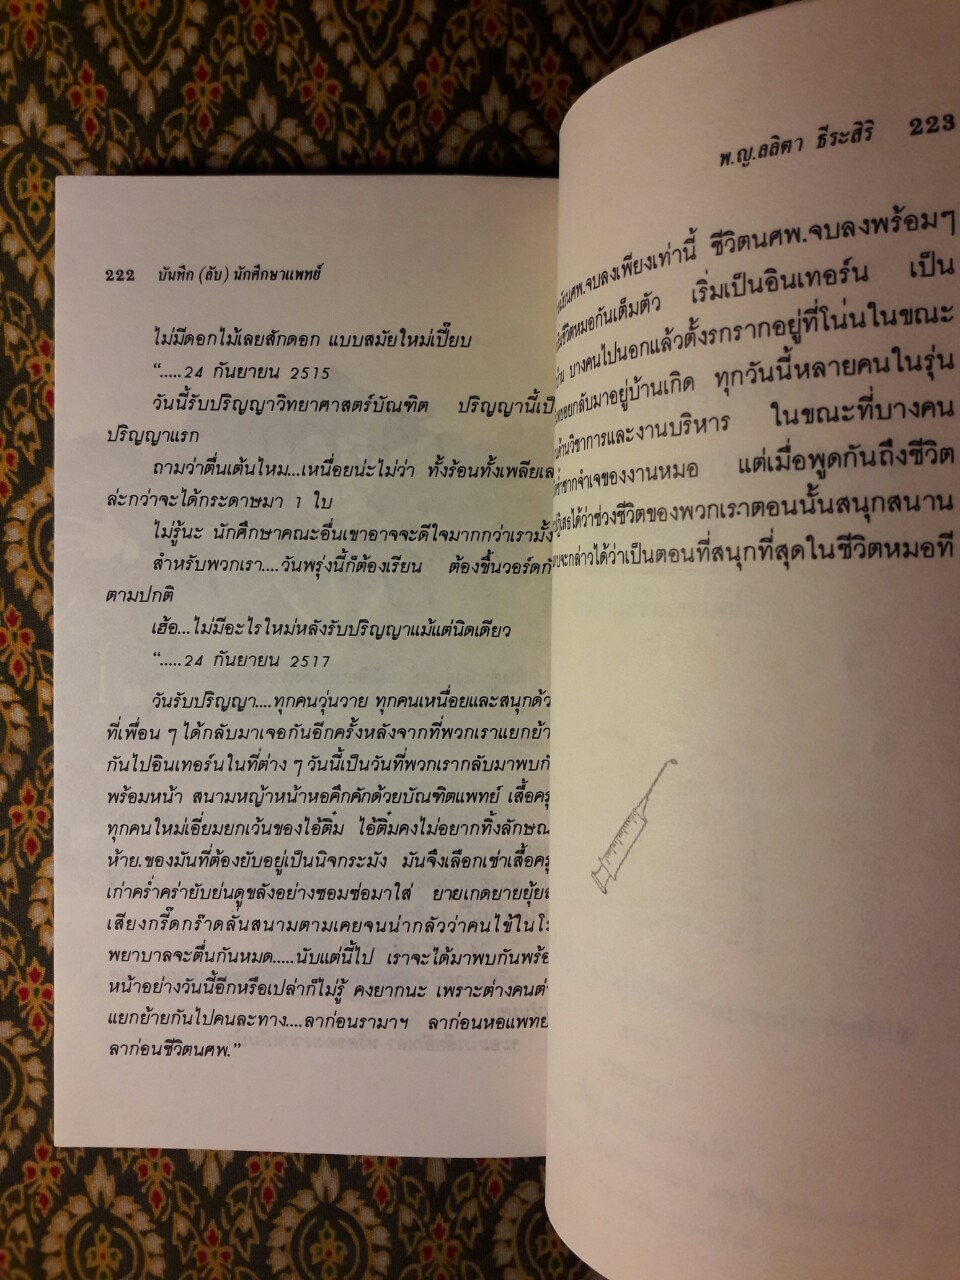 222 บันทึก (ลับ) นักศึกษาแพทย์
ไม่มีดอกไม้เลยสักดอก แบบสมัยใหม่เปี๊ยบ
“.....24 กันยายน 2515
วันนี้รับปริญญาวิทยาศาสตร์บัณฑิต ปริญญานี้เป็
ปริญญาแรก
ถามว่าตื่นเต้นไหม...เหนื่อยน่ะไม่ว่า ทั้งร้อนทั้งเพลียเล
ล่ะกว่าจะได้กระดาษมา 1 ใบ
ไม่รู้นะ นักศึกษาคณะอื่นเขาอาจจะดีใจมากกว่าเรามั้ง
สำหรับพวกเรา....วันพรุ่งนี้ก็ต้องเรียน ต้องขึ้นวอร์ดกั
ตามปกติ
เฮ้อ...ไม่มีอะไรใหม่หลังรับปริญญาแม้แต่นิดเดียว
“.....24 กันยายน 2517
วันรับปริญญา....ทุกคนวุ่นวาย ทุกคนเหนื่อยและสนุกด้ว
ที่เพื่อน ๆ ได้กลับมาเจอกันอีกครั้งหลังจากที่พวกเราแยกย้า
กันไปอินเทอร์นในที่ต่าง ๆ วันนี้เป็นวันที่พวกเรากลับมาพบกั
พร้อมหน้า สนามหญ้าหน้าหอคึกคักด้วยบัณฑิตแพทย์ เสื้อครุ
ทุกคนใหม่เอี่ยมยกเว้นของไอ้ติ๋ม ไอ้ติ๋มคงไม่อยากทิ้งลักษณ
ห้าย.ของมันที่ต้องยับอยู่เป็นนิจกระมัง มันจึงเลือกเช่าเสื้อครุ
เก่าคร่ำคร่ายับย่นดูขลังอย่างซอมซ่อมาใส่ ยายเกดยายยุ้ยส
เสียงกรี๊ดกร๊าดลั่นสนามตามเคยจนน่ากลัวว่าคนไข้ในโร
พยาบาลจะตื่นกันหมด.....นับแต่นี้ไป เราจะได้มาพบกันพร้อ
หน้าอย่างวันนี้อีกหรือเปล่าก็ไม่รู้ คงยากนะ เพราะต่างคนต่า
แยกย้ายกันไปคนละทาง....ลาก่อนรามาฯ ลาก่อนหอแพทย
ลาก่อนชีวิตนศพ.”
พ.ญ.ลลิตา ธีระสิริ 223
นศพ.จบลงเพียงเท่านี้ ชีวิตนศพ.จบลงพร้อมๆ
ชีวิตหมอกันเต็มตัว เริ่มเป็นอินเทอร์น เป็น
บางคนไปนอกแล้วตั้งรกรากอยู่ที่โน่นในขณะ
กลับมาอยู่บ้านเกิด ทุกวันนี้หลายคนในรุ่น
ด้านวิชาการและงานบริหาร ในขณะที่บางคน
ซ้ำซากจำเจของงานหมอ แต่เมื่อพูดกันถึงชีวิต
ได้ว่าช่วงชีวิตของพวกเราตอนนั้นสนุกสนาน
จะกล่าวได้ว่าเป็นตอนที่สนุกที่สุดในชีวิตหมอที